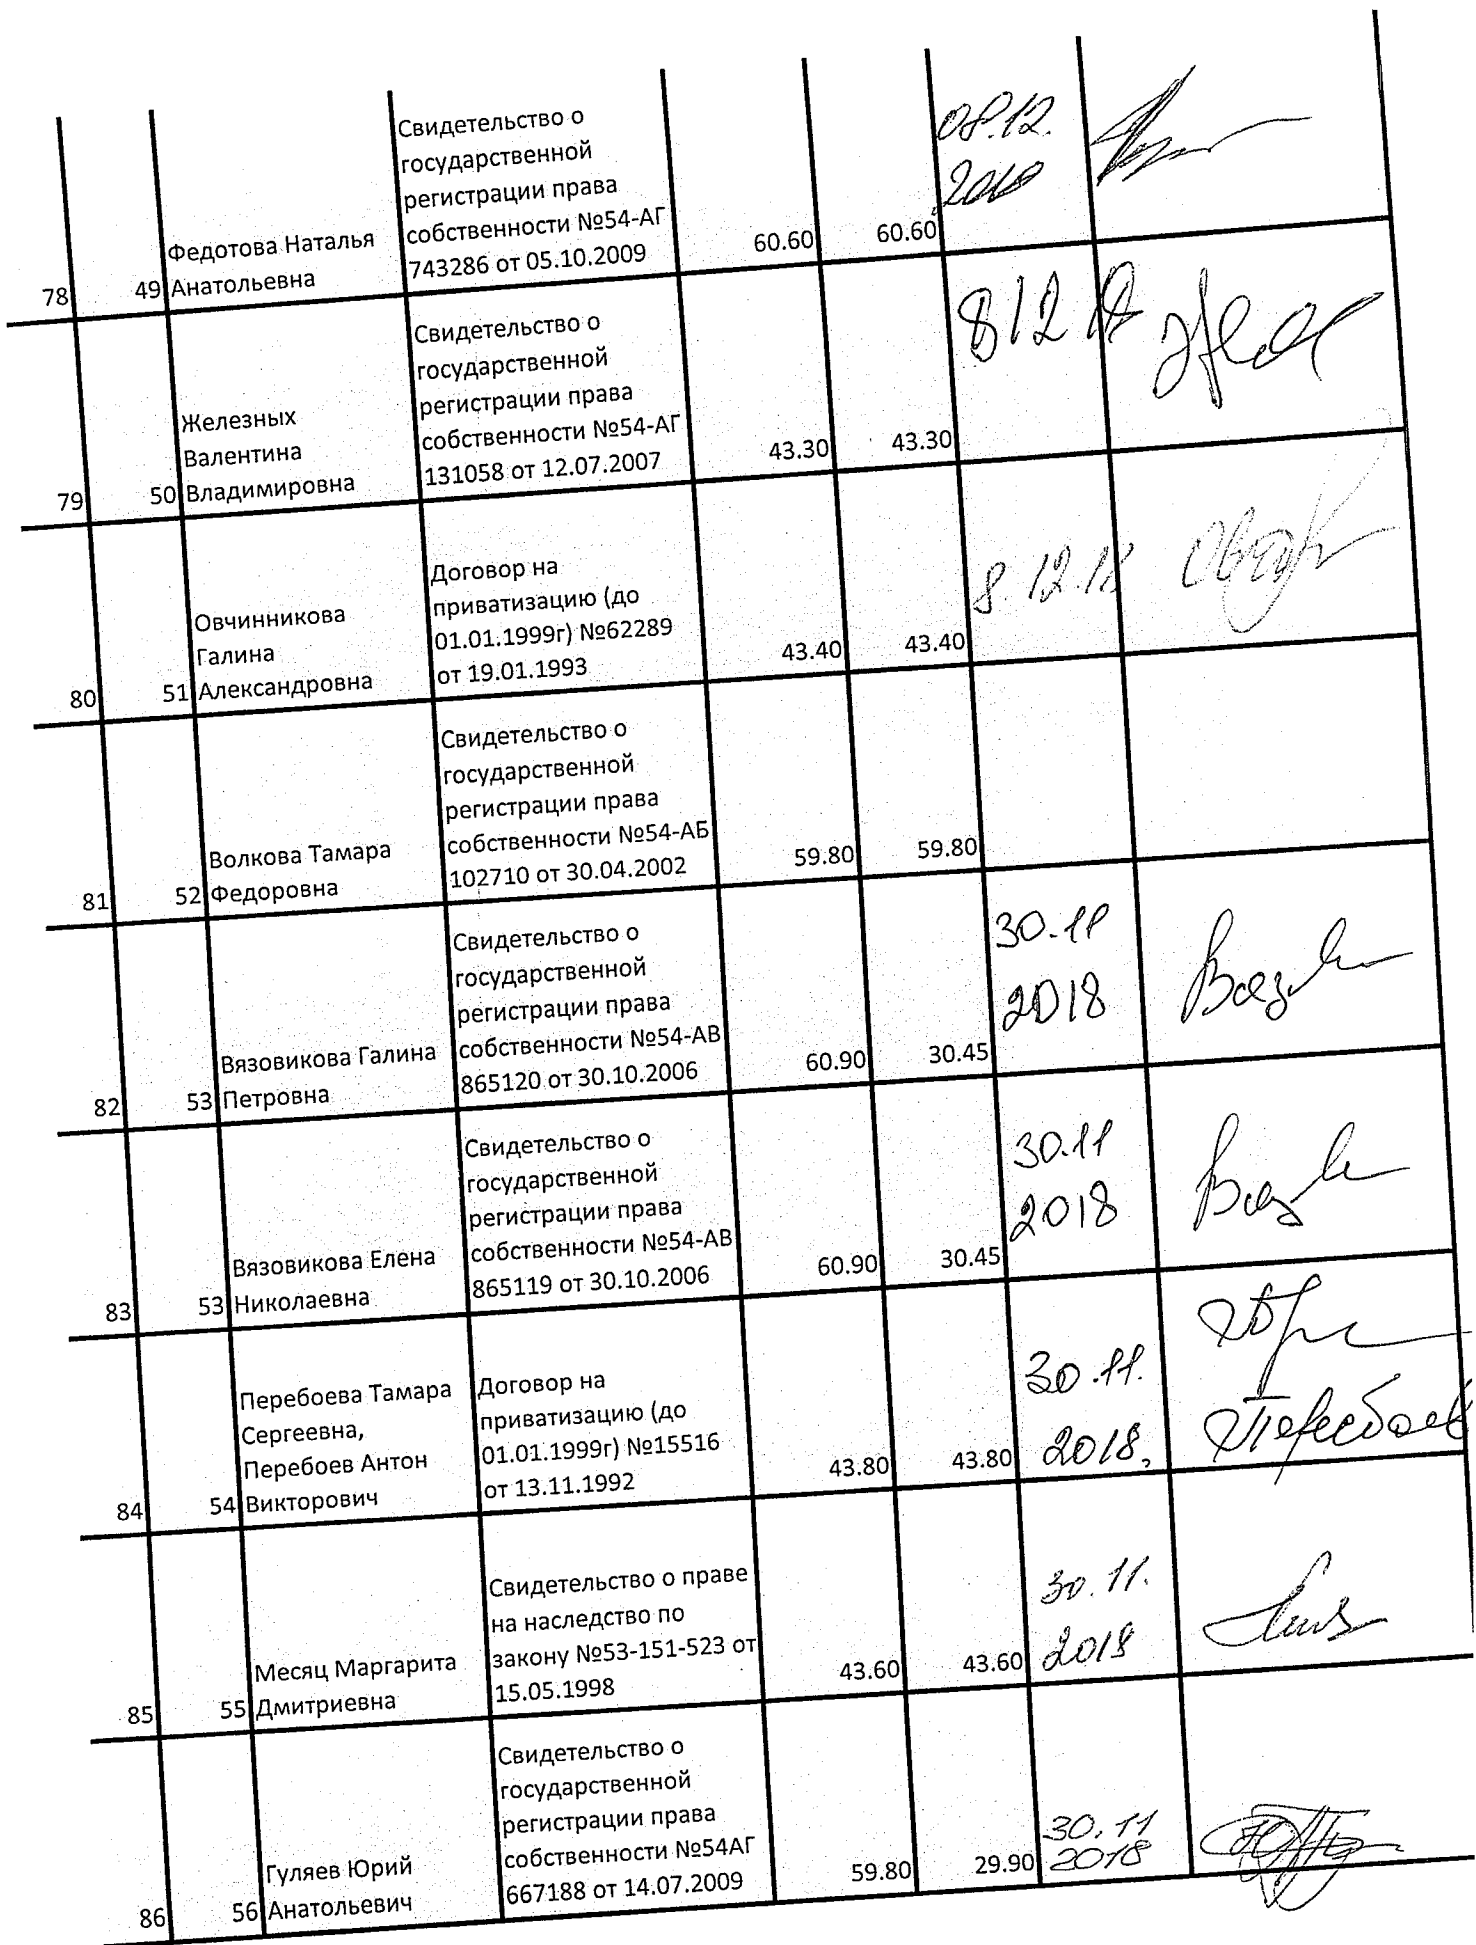 78
49
Федотова Наталья
Анатольевна
Свидетельство о
государственной
регистрации права
собственности №54-АГ
743286 от 05.10.2009
60.60
60.60
08.12.
79
50
Железных
Валентина
Владимировна
Свидетельство о
государственной
регистрации права
собственности №54-АГ
131058 от 12.07.2007
43.30
43.30
8 12 18
80
51
Овчинникова
Галина
Александровна
Договор на
приватизацию (до
01.01.1999г) №62289
от 19.01.1993
43.40
43.40
8.12.18
81
52
Волкова Тамара
Федоровна
Свидетельство о
государственной
регистрации права
собственности №54-АБ
102710 от 30.04.2002
59.80
59.80
82
53
Вязовикова Галина
Петровна
Свидетельство о
государственной
регистрации права
собственности №54-АВ
865120 от 30.10.2006
60.90
30.45
30.11
2018
83
53
Вязовикова Елена
Николаевна
Свидетельство о
государственной
регистрации права
собственности №54-АВ
865119 от 30.10.2006
60.90
30.45
30.11
2018
84
54
Перебоева Тамара
Сергеевна,
Перебоев Антон
Викторович
Договор на
приватизацию (до
01.01.1999г) №15516
от 13.11.1992
43.80
43.80
30.11.
2018,
85
55
Месяц Маргарита
Дмитриевна
Свидетельство о праве
на наследство по
закону №53-151-523 от
15.05.1998
43.60
43.60
30.11.
2018
86
56
Гуляев Юрий
Анатольевич
Свидетельство о
государственной
регистрации права
собственности №54АГ
667188 от 14.07.2009
59.80
29.90
30.11
2018